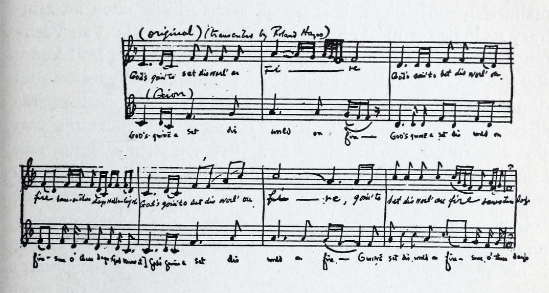 (original) (transcribed by Roland Hayes)
God's goin'to set dis worl' on Fi — re God's goin'to set dis worl' on
God's gwine a set dis world on fire — God's gwine a set dis world on
fire some o' these days God's goin'to set dis worl' on fi — re, goin'to set dis worl' on fire days
fire — some o' these days God God's gwine a set dis world on fire — Gwine set dis world on fire — some o' these days